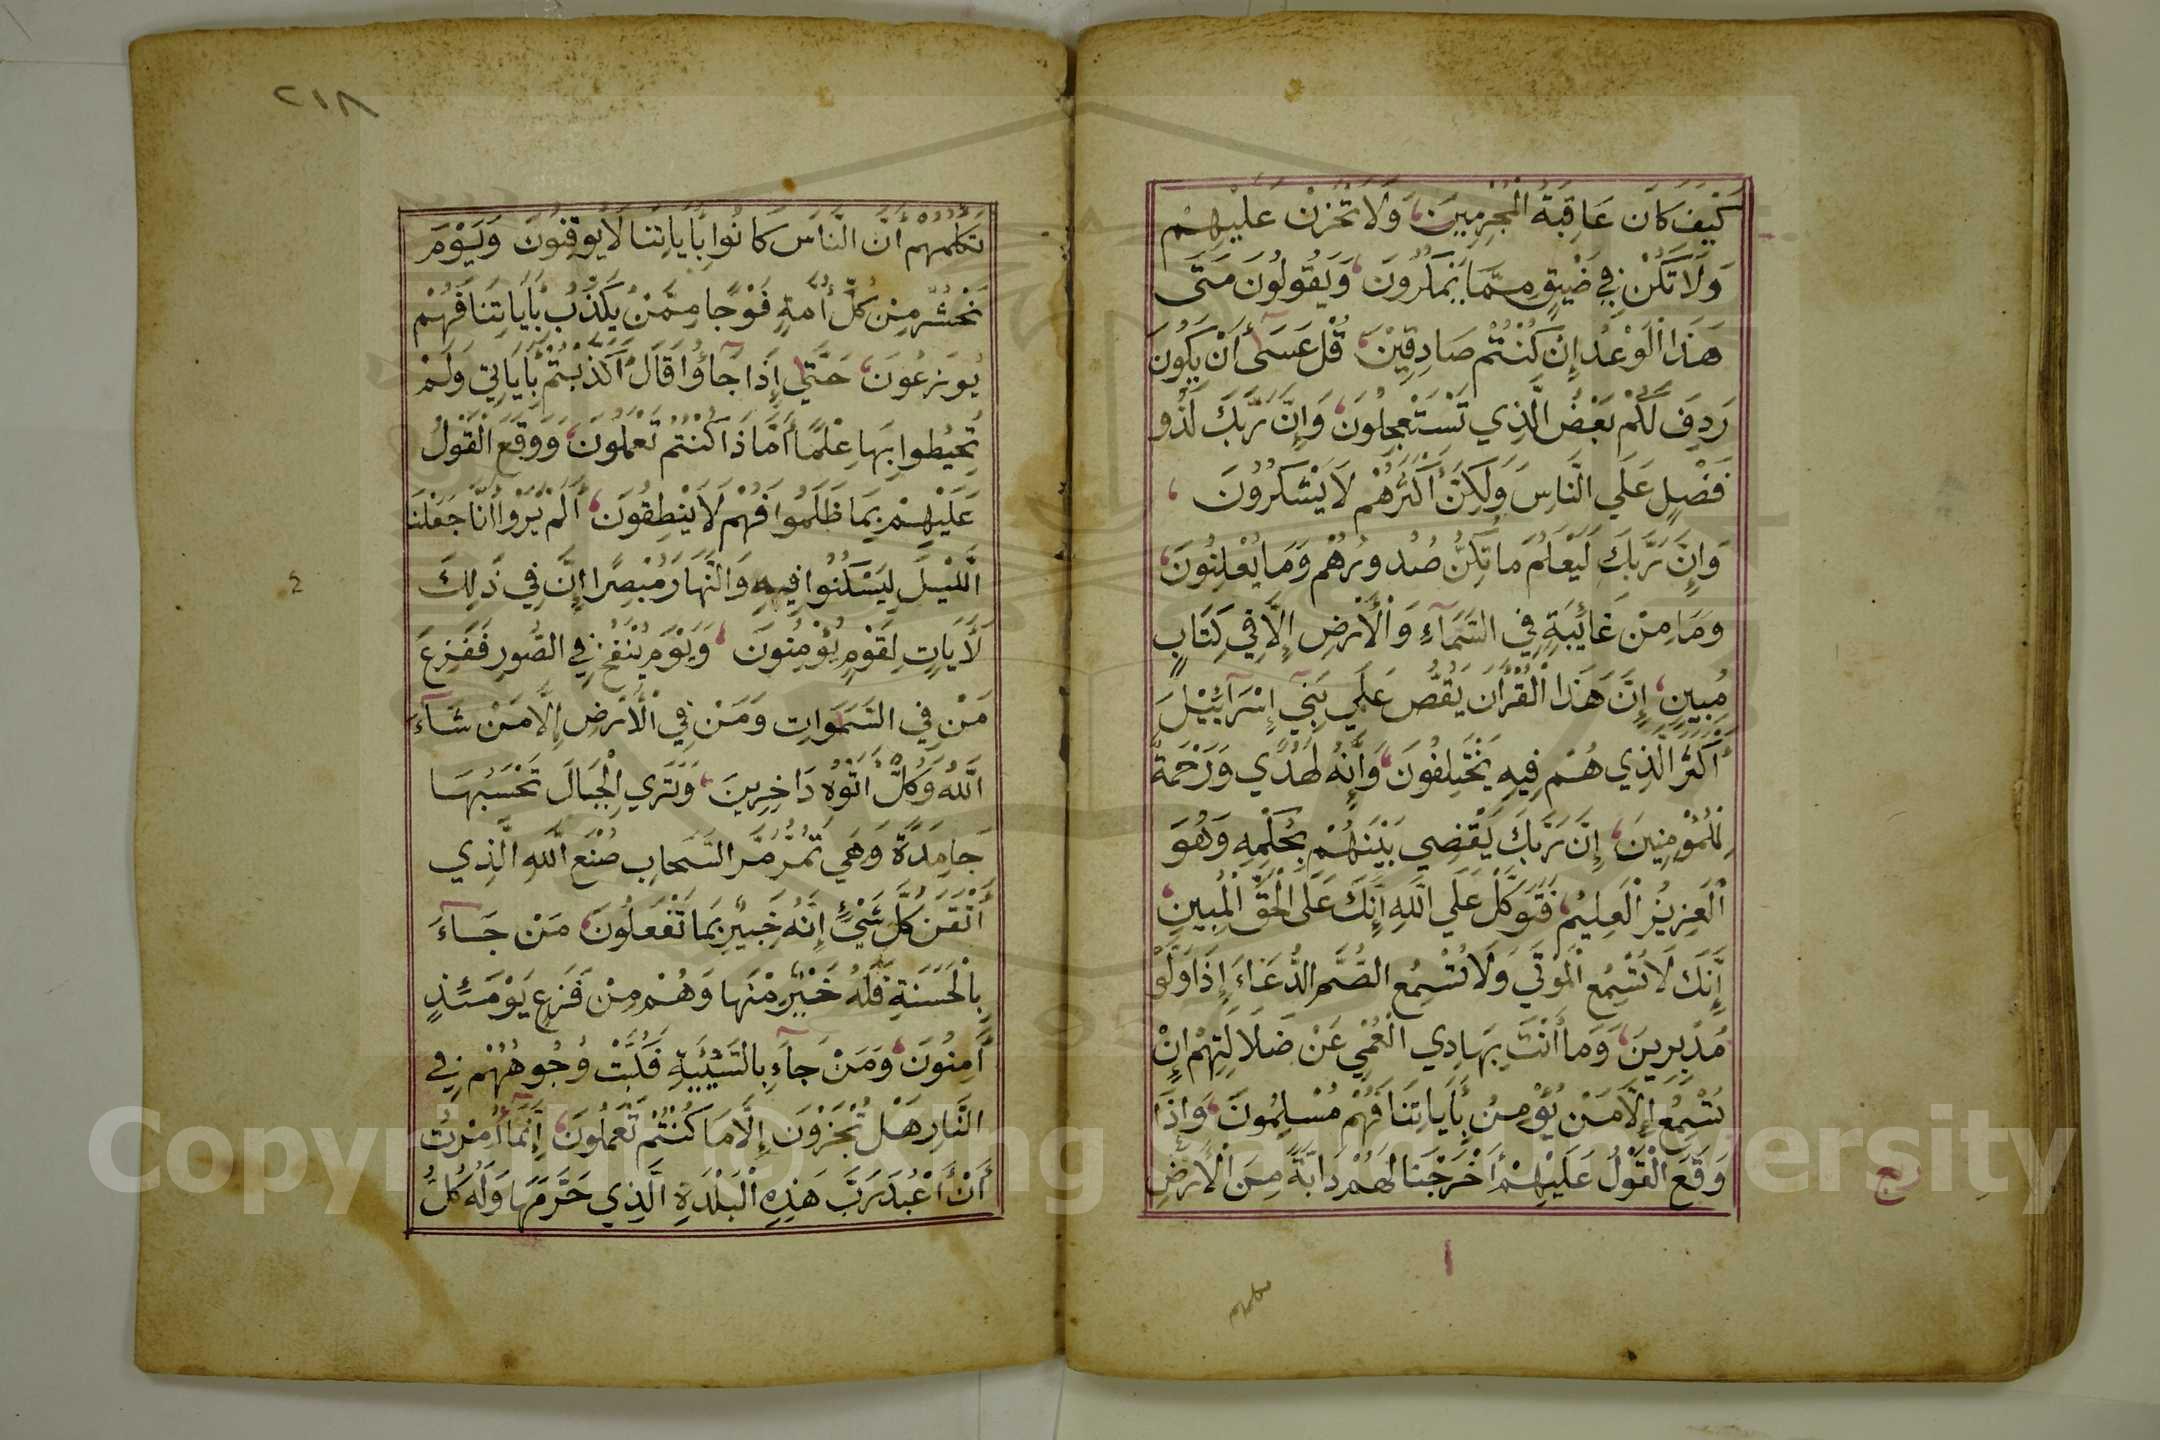 كَيْفَ كَانَ عَاقِبَةُ الْمُجْرِمِينَ، وَلَا تَحْزَنْ عَلَيْهِمْ
وَلَا تَكُنْ فِي ضَيْقٍ مِمَّا يَمْكُرُونَ، وَيَقُولُونَ مَتَى
هَذَا الْوَعْدُ إِنْ كُنْتُمْ صَادِقِينَ، قُلْ عَسَى أَنْ يَكُونَ
رَدِفَ لَكُمْ بَعْضُ الَّذِي تَسْتَعْجِلُونَ، وَإِنَّ رَبَّكَ لَذُو
فَضْلٍ عَلَي النَّاسِ وَلَكِنَّ أَكْثَرَهُمْ لَا يَشْكُرُونَ ،
وَإِنَّ رَبَّكَ لَيَعْلَمُ مَا تُكِنُّ صُدُورُهُمْ وَمَا يُعْلِنُونَ،
وَمَا مِنْ غَائِبَةٍ فِي السَّمَآءِ وَالْأَرْضِ إِلَّا فِي كِتَابٍ
مُبِينٍ، إِنَّ هَذَا الْقُرْآنَ يَقُصُّ عَلَي بَنِي إِسْرَآئِيْلَ
أَكْثَرَ الَّذِي هُمْ فِيهِ يَخْتَلِفُونَ، وَإِنَّهُ لَهُدًي وَرَحْمَةٌ
لِلْمُؤْمِنِينَ، إِنَّ رَبَّكَ يَقْضِي بَيْنَهُمْ بِحُكْمِهِ وَهُوَ
الْعَزِيزُ الْعَلِيمُ، فَتَوَكَّلْ عَلَي اللهِ إِنَّكَ عَلَى الْحَقِّ الْمُبِينِ،
إِنَّكَ لَا تُسْمِعُ الْمَوْتَي وَلَا تُسْمِعُ الصُّمَّ الدُّعَاءَ إِذَا وَلَّوْ
مُدْبِرِينَ، وَمَا أَنْتَ بِهَادِي الْعُمْيِ عَنْ ضَلَالَتِهِمْ إِنْ
تُسْمِعُ إِلَّا مَنْ يُؤْمِنُ بِأَيَاتِنَا فَهُمْ مُسْلِمُونَ، وَإِذَا
وَقَعَ الْقَوْلُ عَلَيْهِمْ أَخْرَجْنَا لَهُمْ دَابَّةً مِنَ الْأَرْضِ
٢١٨
تُكَلِّمُهُمْ أَنَّ النَّاسَ كَانُوا بِأَيَاتِنَا لَا يُوقِنُونَ وَيَوْمَ
نَحْشُرُ مِنْ كُلِّ أُمَّةٍ فَوْجًا مِمَّنْ يُكَذِّبُ بِأَيَاتِنَا فَهُمْ
يُوزَعُونَ، حَتَّي إِذَا جَآؤُا قَالَ أَكَذَّبْتُمْ بِأَيَاتِي وَلَمْ
تُحِيطُوا بِهَا عِلْمًا أَمَّا ذَا كُنْتُمْ تَعْمَلُونَ، وَوَقَعَ الْقَوْلُ
عَلَيْهِمْ بِمَا ظَلَمُوا فَهُمْ لَا يَنْطِقُونَ، أَلَمْ يَرَوْا أَنَّا جَعَلْنَا
اللَّيْلَ لِيَسْكُنُوا فِيهِ وَالنَّهَارَ مُبْصِرًا إِنَّ فِي ذَلِكَ
لَأَيَاتٍ لِقَوْمٍ يُؤْمِنُونَ ، وَيَوْمَ يُنْفَخُ فِي الصُّورِ فَفَزِعَ
مَنْ فِي السَّمَوَاتِ وَمَنْ فِي الْأَرْضِ إِلَّا مَنْ شَآءَ
اللهُ وَكُلٌّ أَتَوْهُ دَاخِرِينَ، وَتَرَي الْجِبَالَ تَحْسَبُهَا
جَامِدَةً وَهِيَ تَمُرُّ مَرَّ السَّحَابِ صُنْعَ اللهِ الَّذِي
أَتْقَنَ كُلَّ شَيْءٍ إِنَّهُ خَبِيرٌ بِمَا تَفْعَلُونَ، مَنْ جَآءَ
بِالْحَسَنَةِ فَلَهُ خَيْرٌ مِنْهَا وَهُمْ مِنْ فَزَعٍ يَوْمَئِذٍ
آمِنُونَ، وَمَنْ جَآءَ بِالسَّيِّئَةِ فَكُبَّتْ وُجُوهُهُمْ فِي
النَّارِ هَلْ تُجْزَوْنَ إِلَّا مَا كُنْتُمْ تَعْمَلُونَ، إِنَّمَآ أُمِرْتُ
أَنْ أَعْبُدَ رَبَّ هَذِهِ الْبَلْدَةِ الَّذِي حَرَّمَهَا وَلَهُ كُلُّ
Copyright © King Saud University